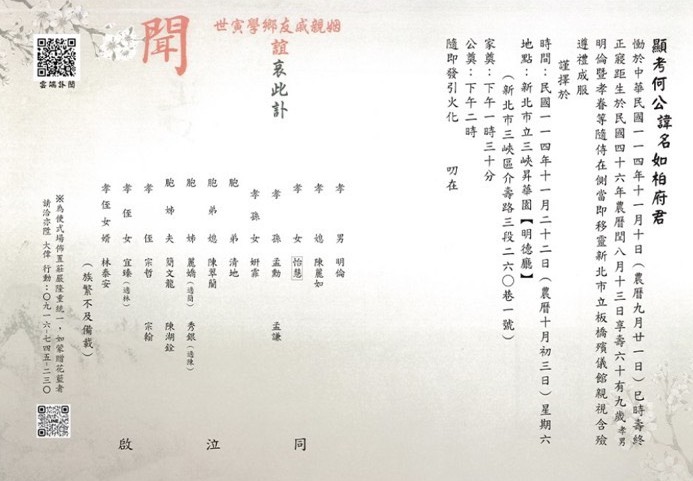 顯考何公諱名如柏府君
慟於中華民國一一四年十一月十日(農曆九月廿一日)巳時壽終
正寢距生於民國四十六年農曆閏八月十三日享壽六十有九歲孝男
明倫暨孝眷等隨侍在側當即移靈新北市立板橋殯儀館親視含殮
遵禮成服
謹擇於
時間:民國一一四年十一月二十二日(農曆十月初三日)星期六
地點:新北市立三峽昇華園【明德廳】
(新北市三峽區介壽路三段二六〇巷一號)
家奠:下午一時三十分
公奠:下午二時
隨即發引火化
叨在
姻親戚友鄉學寅世
誼哀此訃
聞
孝男 明倫
孝媳 陳麗如
孝女 怡慧
孝孫 孟勳 孟謙
孝孫女 妍霏
胞弟 清地
胞弟媳 陳翠蘭
胞姊 麗嬌(適簡) 秀銀(適陳)
胞姊夫 簡文龍 陳湖銓
孝姪 宗哲 宗翰
孝姪女 宜臻(適林)
孝姪女婿 林泰安
(族繁不及備載)
同泣啟
※為使式場佈置莊嚴隆重統一,如蒙贈花藍者
請洽亦陞 大偉 行動:〇九一六-七四五-二三〇
雲端訃聞